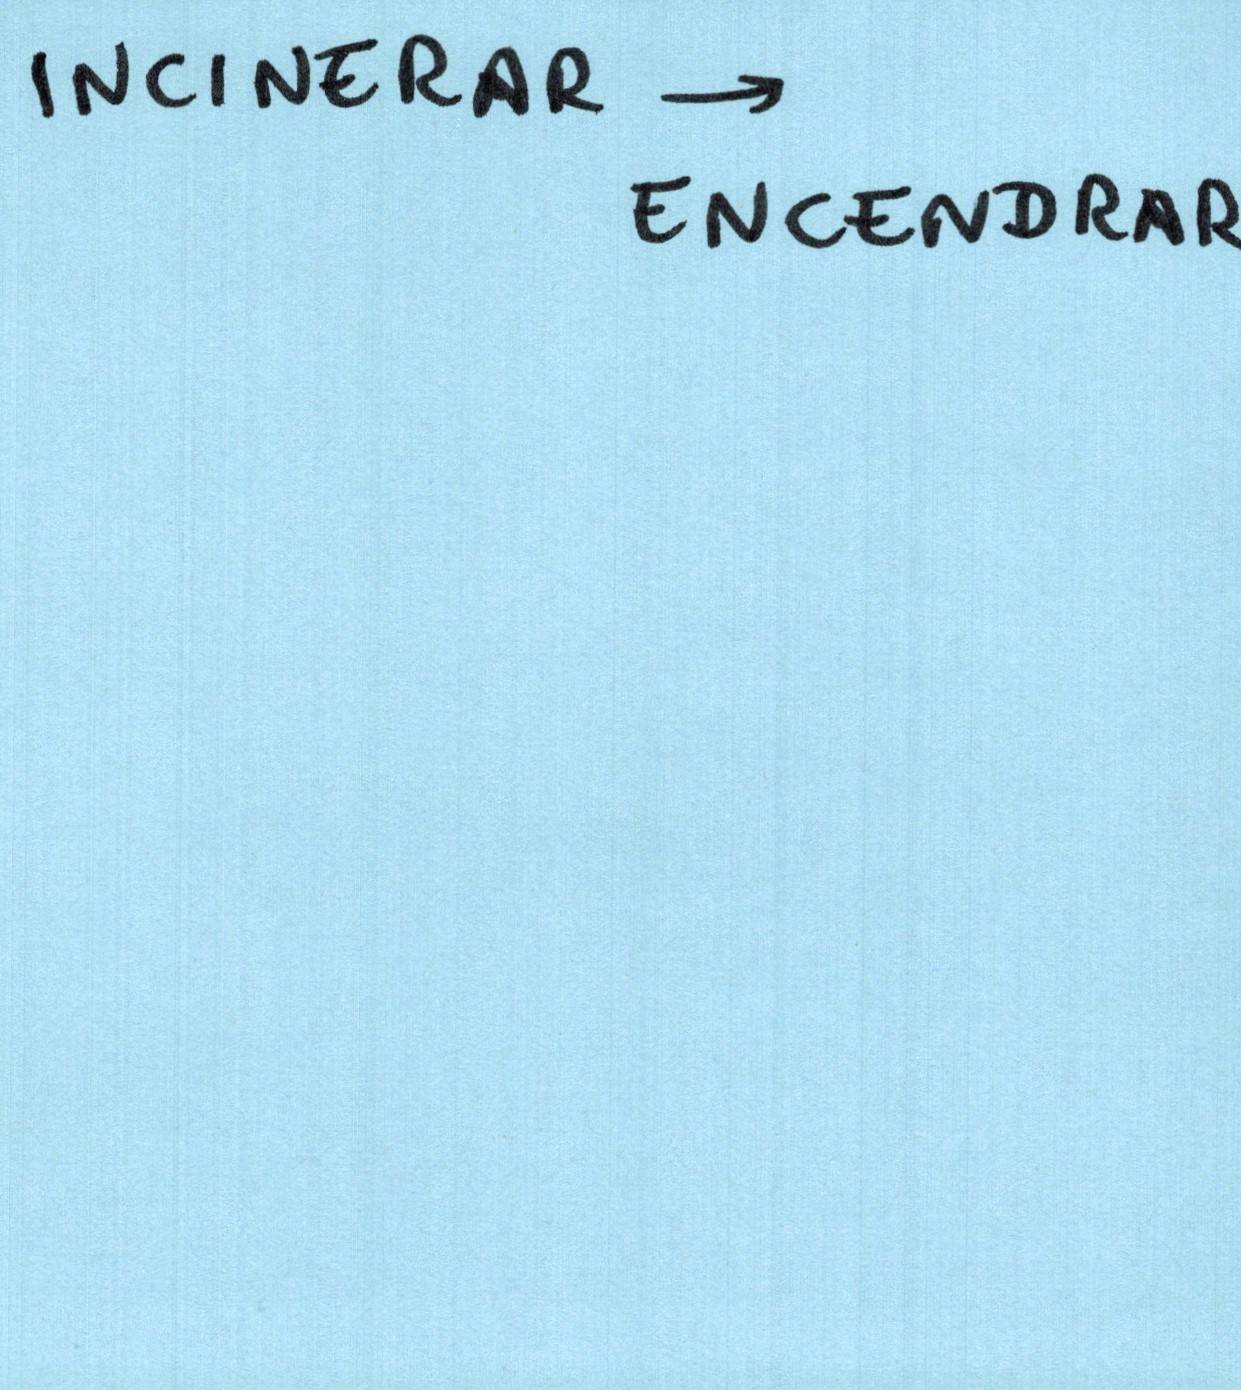 INCINERAR →
ENCENDRAR